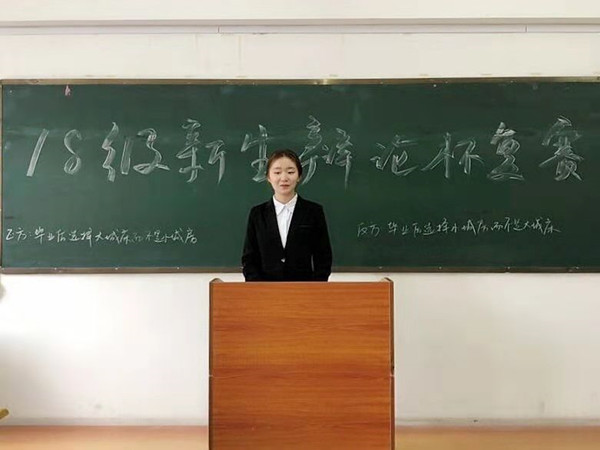 18级新生辩论杯复赛
正方：毕业后选择大城床而不是小城房
反方 毕业后选择小城房而不是大城床